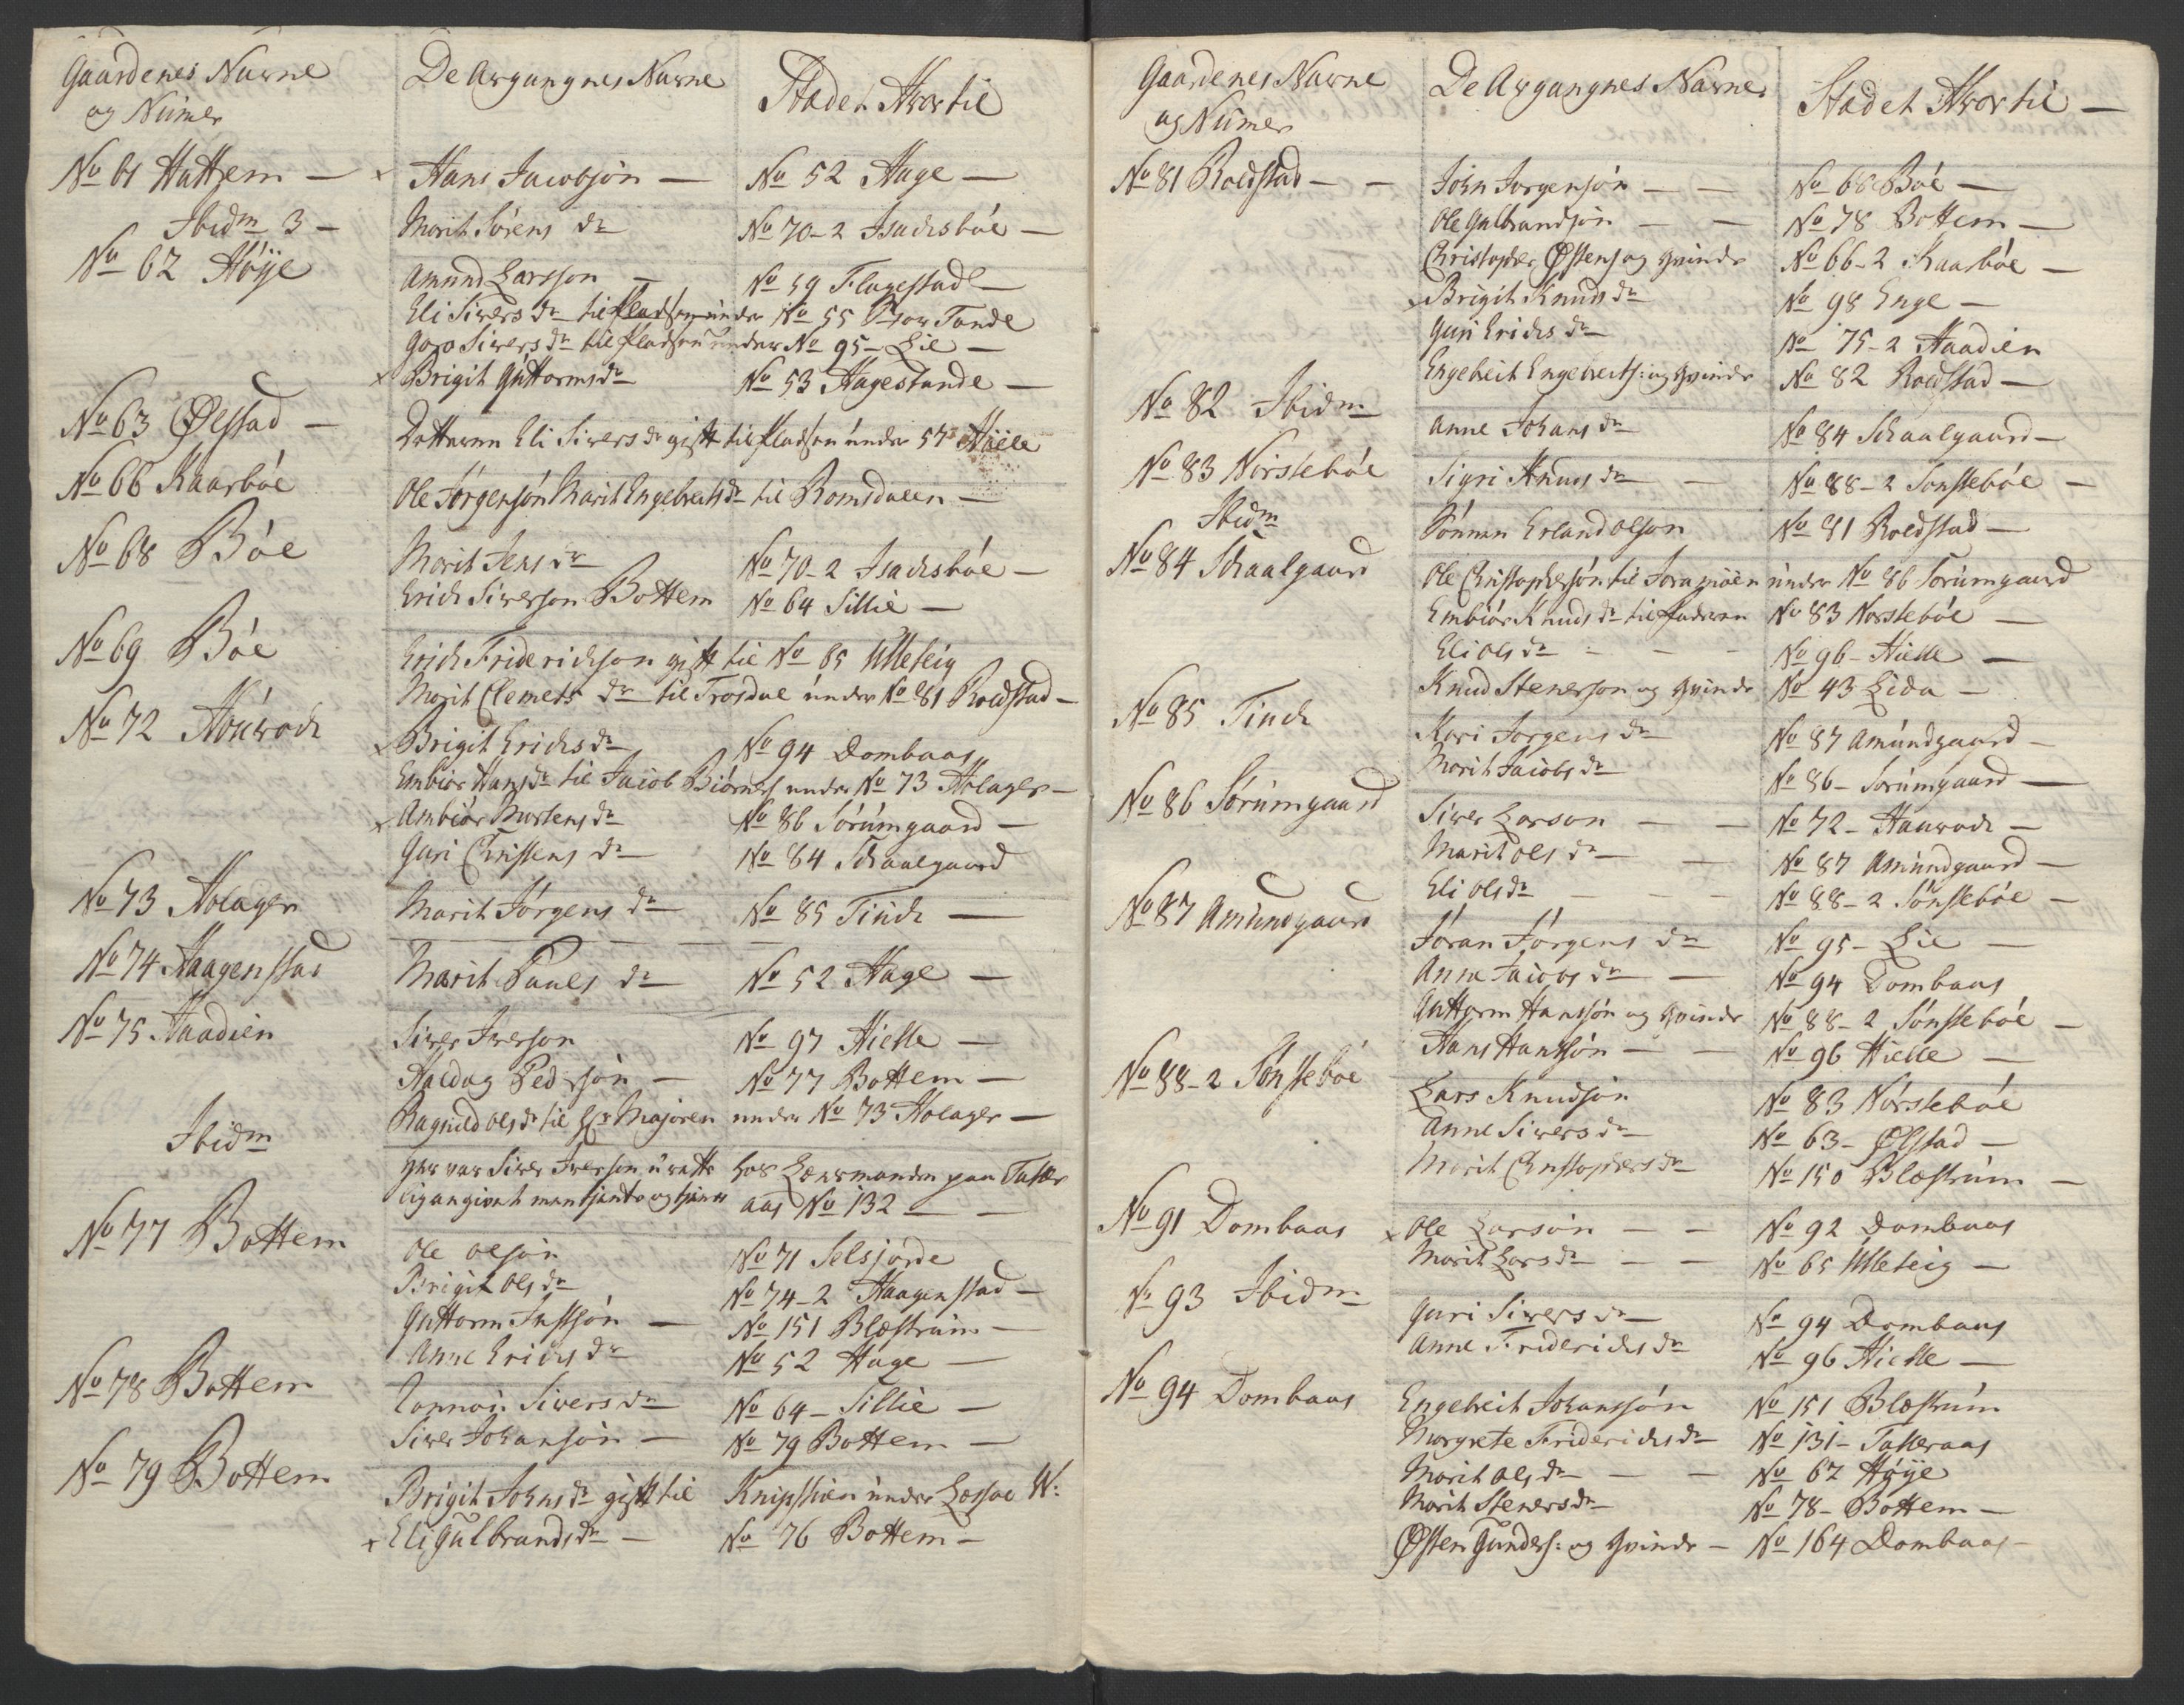 Gaardenes Navne
og Numer
De Avgangnes Navne
Stadet Hvortil
No 61 Hattrem — Hans Jacobsøn — No 52 Hage —
Ibidm 3 — Marit Sørens dr No 70-2 Isachsbøe —
No 62 Høÿe Amund Larsson — No 59 Flagestad —
Eli Sivers dr til Pladsen under No 55 Tande
Goro Sivers dr til Pladsen under No 95 — Lie —
× Brigit Guttorms dr No 53 Hagestande —
No 63 Ølstad — Datteren Eli Sivers dr gift til Pladsen under 57 Hielle
No 66 Kaarbøe Ole Jørgensøn Marit Engebrets dr til Romsdalen —
No 68 Bøe Marit Jens dr No 70-2 Isachsbøe —
Erich Siverson Bottem No 64 Sillie —
No 69 Bøe Erich Friderichson gift til No 65 Ulleteig
Marit Clemets dr til Trosdal under No 81 Roldstad —
No 72 × Brigit Erichs dr No 94 Dombaas
Embiør Hans dr til Jacob Biørners under No 73 Holager —
× Ambiør Mortens dr No 86 Sørumgaard —
Guri Christens dr No 84 Schaalgaard
No 73 Holager Marit Jørgens dr No 85 Tiuch —
No 74 Haagenstad Marit Pauls dr No 52 Hage —
No 75 Haadien Siver Iverson No 97 Hielle —
Haldag Pedersøn — No 77 Bottem —
Ragnild Ols dr til Hr Majoren under No 73 Holager —
Ibidm Her var Siver Iverson urætte hos Lænsmanden paa Tafter
lig angivet men tjente og tjener aas No 132 —
No 77 Bottem Ole Olsøn No 71 Selsjorde
Brigit Ols dr No 74-2 Haagenstad —
Guttorm Justsøn — No 151 Blæstrum —
Anne Erichs dr No 52 Hage —
No 78 Bottem Sivers dr No 64 — Sillie —
Siver Johansøn — No 79 Bottem —
No 79 Bottem Brigit Johns dr gift til Knipshien under Lessøe W:
× Eli Gulbrands dr — No 76 Bottem —
Gaardenes Navne
og Numer
De Avgangnes Navne
Stadet Hvortil —
No 81 Roldstad — — John Jørgensøn — — No 68 Bøe —
Ole Gulbrandsøn — — No 78 Bottem —
Christopher Østens og Qvinde No 66-2 Kaarbøe —
× Brigit Knuds dr No 98 Enge —
Guri Erichs dr No 75-2 Haadien
Engebreit Engebreits: og Qvinde No 82 Roldstad —
No 82 Ibidm Anne Johans dr No 84 Schaalgaard —
No 83 Norstebøe Sigri Knuds dr — No 88-2 Sønstebøe —
Ibidm Sønnen Erland Olson No 81 Roldstad —
No 84 Schaalgaard Ole Christophersøn til Joramoen under No 86 Sørumgaard
Embiør Knuds dr til Faderen No 83 Norstebøe —
Eli Ols dr — — — No 96 — Hielle —
Knud Stenerson og Qvinde No 43 Lida —
No 85 Tiuch Kari Jørgens dr No 87 Amundgaard —
Marit Jacobs dr No 86 — Sørumgaard —
No 86 Sørumgaard Siver Larson — — No 72 —
Marit Ols dr — — No 87 Amundgaard —
Eli Ols dr — — — No 88-2 Sønstebøe —
No 87 Amundgaard Jøran Jørgens dr No 95 — Lie —
Anne Jacobs dr — No 94 Dombaas
Guttorm Hansøn og Qvinde No 88-2 Sønstebøe —
Hans Hansøn — — No 96 Hielle —
No 88-2 Sønstebøe Lars Knudsøn No 83 Nørstebøe
Anne Sivers dr No 63 — Ølstad —
Marit Christophers dr No 150 Blæstrum —
No 91 Dombaas × Ole Larsøn — — No 92 Dombaas
Marit Lars dr — — No 65 Ulleteig —
No 93 Ibidm Guri Sivers dr No 94 Dombaas
Anne Friderichs dr No 96 Hielle —
No 94 Dombaas Engebreit Johansøn No 151 Blæstrum
Margrete Friderichs dr No 131 — Tafteraas
Marit Ols dr — — No 62 Høÿe
Marit Steners dr No 78 — Bottem —
Østen Gunders: og Qvinde — No 164 Dombaas —